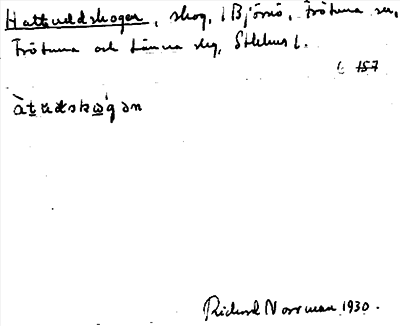 Hattuddskogen, skog, i Björnö, Frötuna sn,
Frötuna och Länna skg, Sthlms l.
157
Richard Norrman 1930.